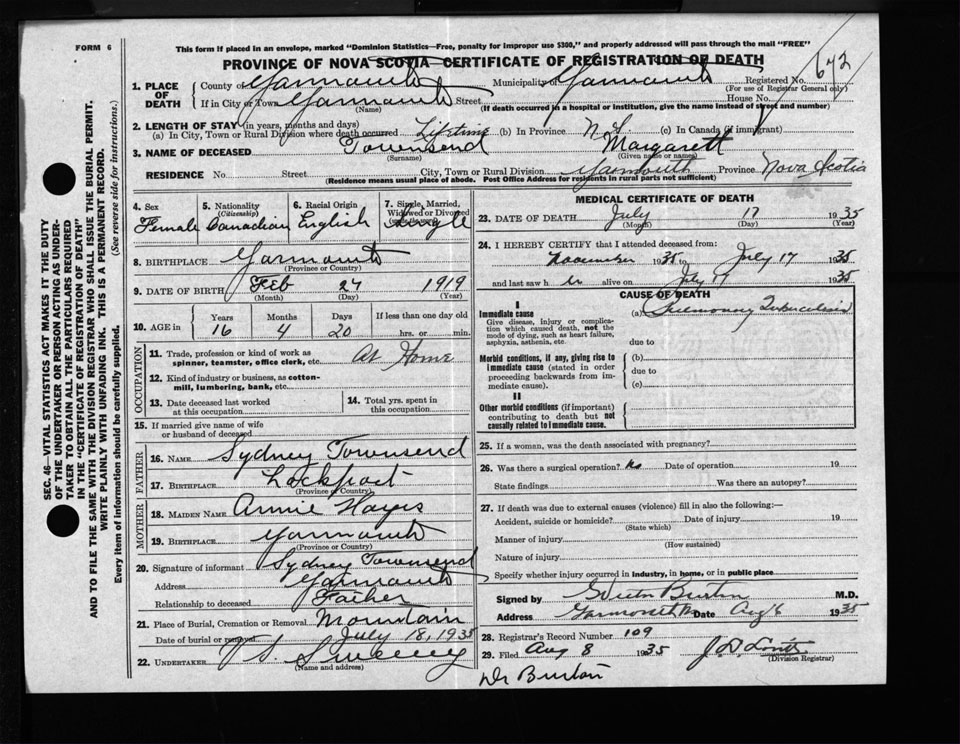 FORM 6
This form if placed in an envelope, marked "Dominion Statistics—Free, penalty for improper use $300," and properly addressed will pass through the mail "FREE"
PROVINCE OF NOVA SCOTIA CERTIFICATE OF REGISTRATION OF DEATH
672
1. PLACE OF DEATH
County of Yarmouth Municipality of Yarmouth Registered No.
(For use of Registrar General only)
If in City or Town Yarmouth Street House No.
(Name) (If death occurred in a hospital or institution, give the name instead of street and number)
2. LENGTH OF STAY (in years, months and days)
(a) In City, Town or Rural Division where death occurred Lifetime (b) In Province N.S. (c) In Canada (if immigrant)
3. NAME OF DECEASED Townsend Margarett
(Surname) (Given name or names)
RESIDENCE No. Street City, Town or Rural Division Yarmouth Province Nova Scotia
(Residence means usual place of abode. Post Office Address for residents in rural parts not sufficient)
4. Sex Female
5. Nationality (Citizenship) Canadian
6. Racial Origin English
7. Single, Married, Widowed or Divorced Single
8. BIRTHPLACE Yarmouth
(Province or Country)
9. DATE OF BIRTH Feb 27 1919
(Month) (Day) (Year)
10. AGE in Years Months Days If less than one day old
16 4 20 hrs. or min.
OCCUPATION
11. Trade, profession or kind of work as spinner, teamster, office clerk, etc. At Home
12. Kind of industry or business, as cotton-mill, lumbering, bank, etc.
13. Date deceased last worked at this occupation
14. Total yrs. spent in this occupation
15. If married give name of wife or husband of deceased
FATHER
16. NAME Sydney Townsend
17. BIRTHPLACE Lockport
(Province or Country)
MOTHER
18. MAIDEN NAME Annie Hayes
19. BIRTHPLACE Yarmouth
(Province or Country)
20. Signature of informant Sydney Townsend
Address Yarmouth
Relationship to deceased Father
21. Place of Burial, Cremation or Removal Mountain
Date of burial or removal July 18, 1935
22. UNDERTAKER Sweeny
(Name and address)
MEDICAL CERTIFICATE OF DEATH
23. DATE OF DEATH July 17 1935
(Month) (Day) (Year)
24. I HEREBY CERTIFY that I attended deceased from:
November 1935 to July 17 1935
and last saw her alive on July 17 1935
CAUSE OF DEATH
I
Immediate cause
Give disease, injury or complication which caused death, not the mode of dying, such as heart failure, asphyxia, asthenia, etc.
(a) Pulmonary Tuberculosis
due to
Morbid conditions, if any, giving rise to immediate cause (stated in order proceeding backwards from immediate cause).
(b)
due to
(c)
II
Other morbid conditions (if important) contributing to death but not causally related to immediate cause.
25. If a woman, was the death associated with pregnancy?
26. Was there a surgical operation? No Date of operation 19
State findings Was there an autopsy?
27. If death was due to external causes (violence) fill in also the following:—
Accident, suicide or homicide? Date of injury 19
(State which)
Manner of injury
(How sustained)
Nature of injury
Specify whether injury occurred in industry, in home, or in public place
Signed by Burton M.D.
Address Yarmouth Date Aug 6 1935
28. Registrar's Record Number 109
29. Filed Aug 8 1935
(Division Registrar)
Dr Burton
SEC. 46—VITAL STATISTICS ACT MAKES IT THE DUTY
OF THE UNDERTAKER OR PERSON ACTING AS UNDERTAKER TO OBTAIN ALL THE PARTICULARS REQUIRED
IN THE "CERTIFICATE OF REGISTRATION OF DEATH"
AND TO FILE THE SAME WITH THE DIVISION REGISTRAR WHO SHALL ISSUE THE BURIAL PERMIT.
WRITE PLAINLY WITH UNFADING INK. THIS IS A PERMANENT RECORD.
Every item of information should be carefully supplied. (See reverse side for instructions.)